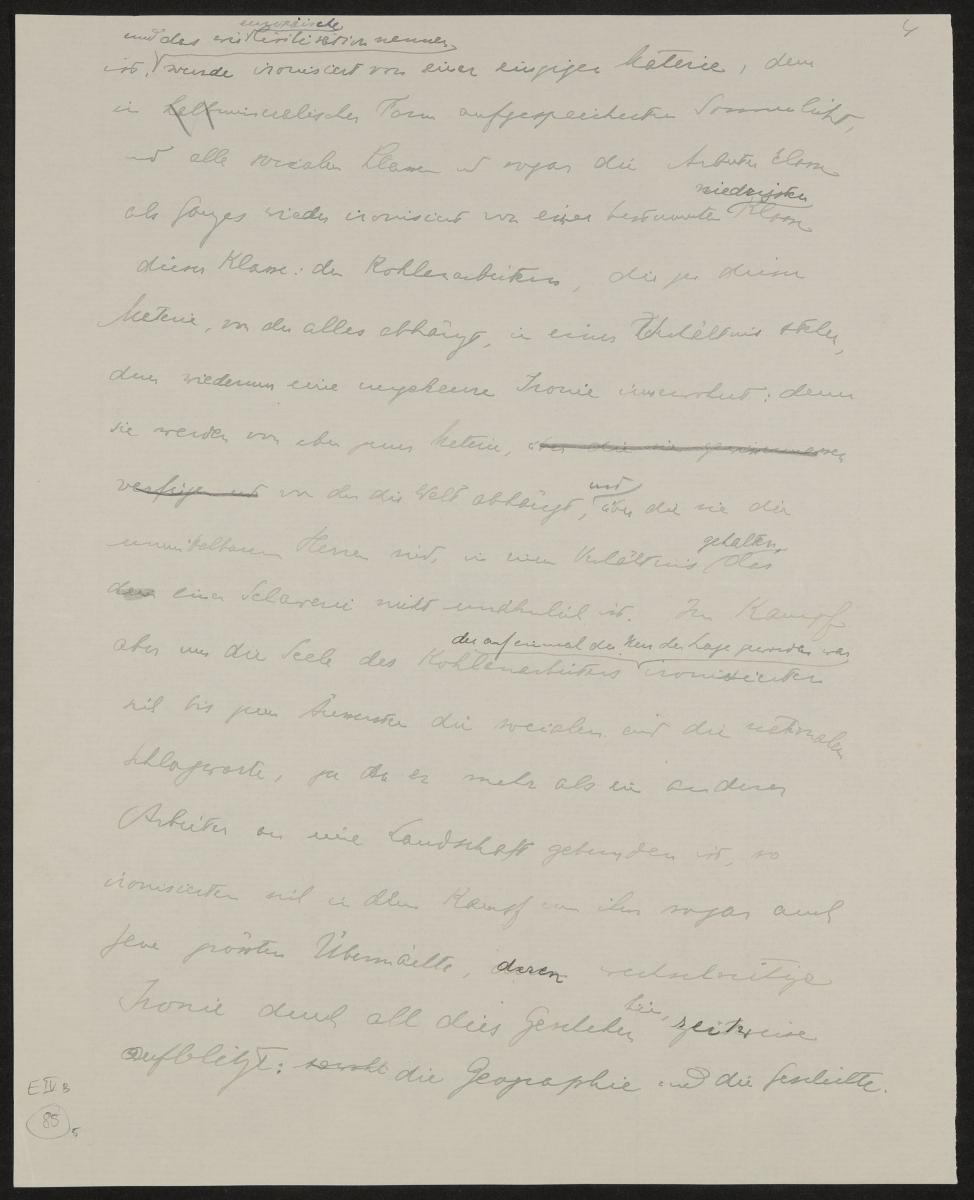 4
europäische
und das wir Civilisation nennen,
ist, wurde ironisiert von einer einzigen Materie, dem
in halbmineralischer Form aufgespeicherten Sonnenlicht,
und alle socialen Klassen u sogar die Arbeiter Classe
niedrigsten
als Ganzes wieder ironisiert von einer bestimmten Klasse
dieser Klasse: den Kohlenarbeitern, die zu dieser
Materie, von der alles abhängt, in einem Verhältnis stehen,
dem wiederum eine ungeheure Ironie innewohnt: denn
sie werden von eben jener Materie, über die sie
verfügen und von der die Welt abhängt, über die sie die
und
unmittelbaren Herren sind, in einem Verhältnis das
gehalten,
dem einer Sclaverei nicht unähnlich ist. Im Kampf
der auf einmal der Herr der Lage geworden war
aber um die Seele des Kohlenarbeiters ironisierten
sich bis zum Äussersten die socialen und die nationalen
Schlagworte, ja da er mehr als ein anderer
Arbeiter an eine Landschaft gebunden ist, so
ironisierten sich in dem Kampf um ihn sogar auch
jene grössten Übermächte, deren wechselseitige
Ironie durch all dies Geschehen hin, zeitweise
aufblitzt: sowohl die Geographie und die Geschichte.
E IV B
85
5